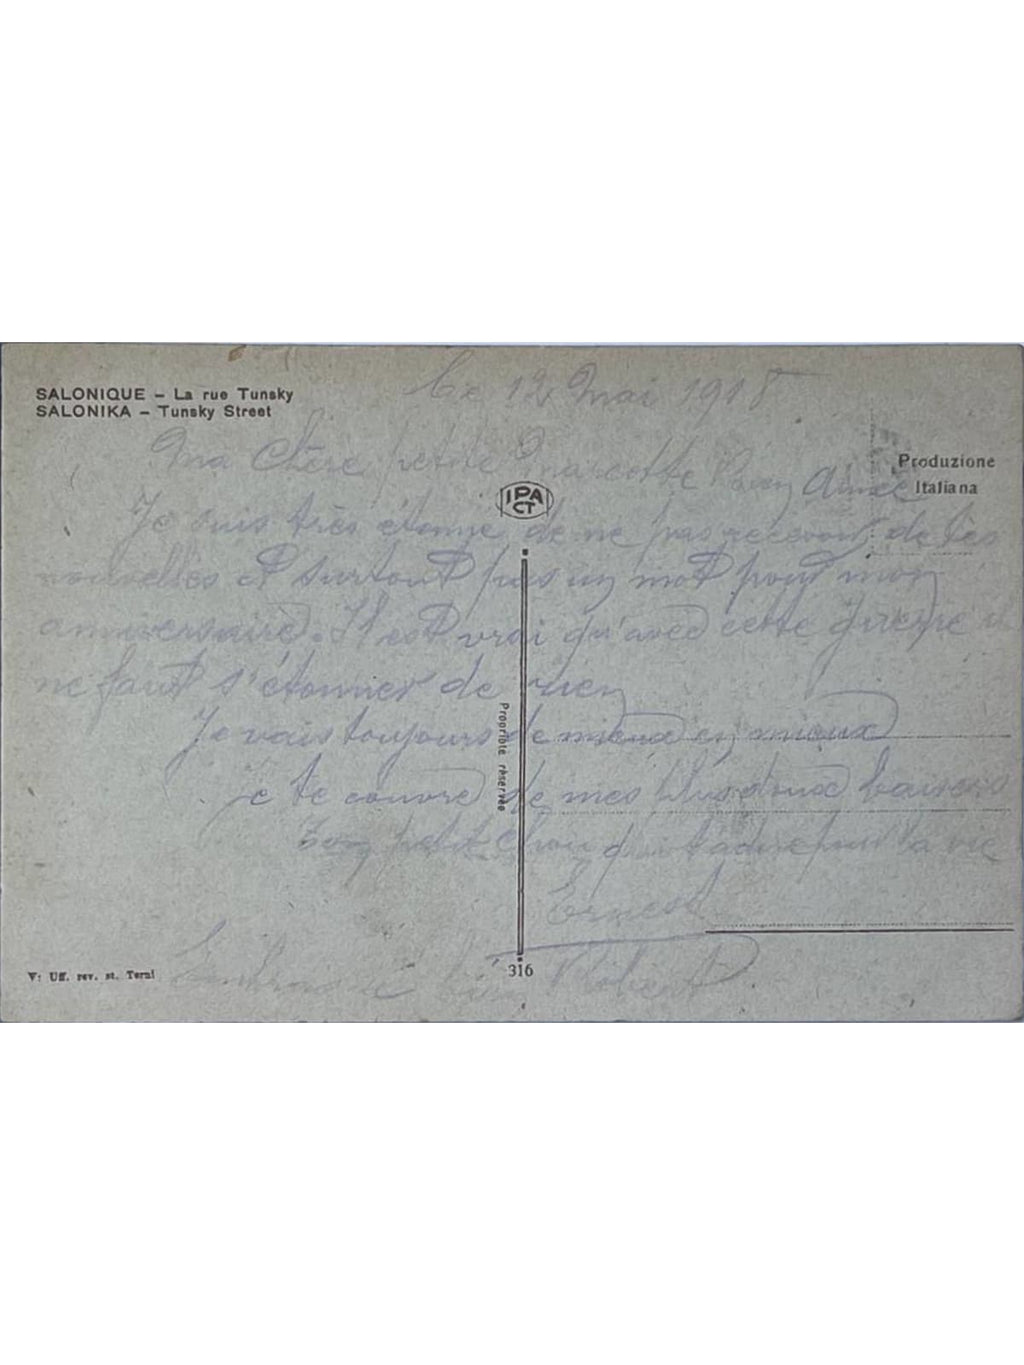 SALONIQUE – La rue Tunsky
SALONIKA – Tunsky Street
Le 12 Mai 1918
Ma Chère petite Marcotte Aimée
Produzione
Italiana
IPA
CT
Je suis très étonné de ne pas recevoir de tes
nouvelles et surtout pas un mot pour mon
anniversaire. Il est vrai qu'avec cette guerre il
ne faut s'étonner de rien
Je vais toujours de mieux en mieux
Je te couvre de mes plus doux baisers
Ton petit chou qui t'adore pour la vie
Ernest
Embrasse bien Robert
Propriété réservée
V: Uff. rev. st. Terni
316